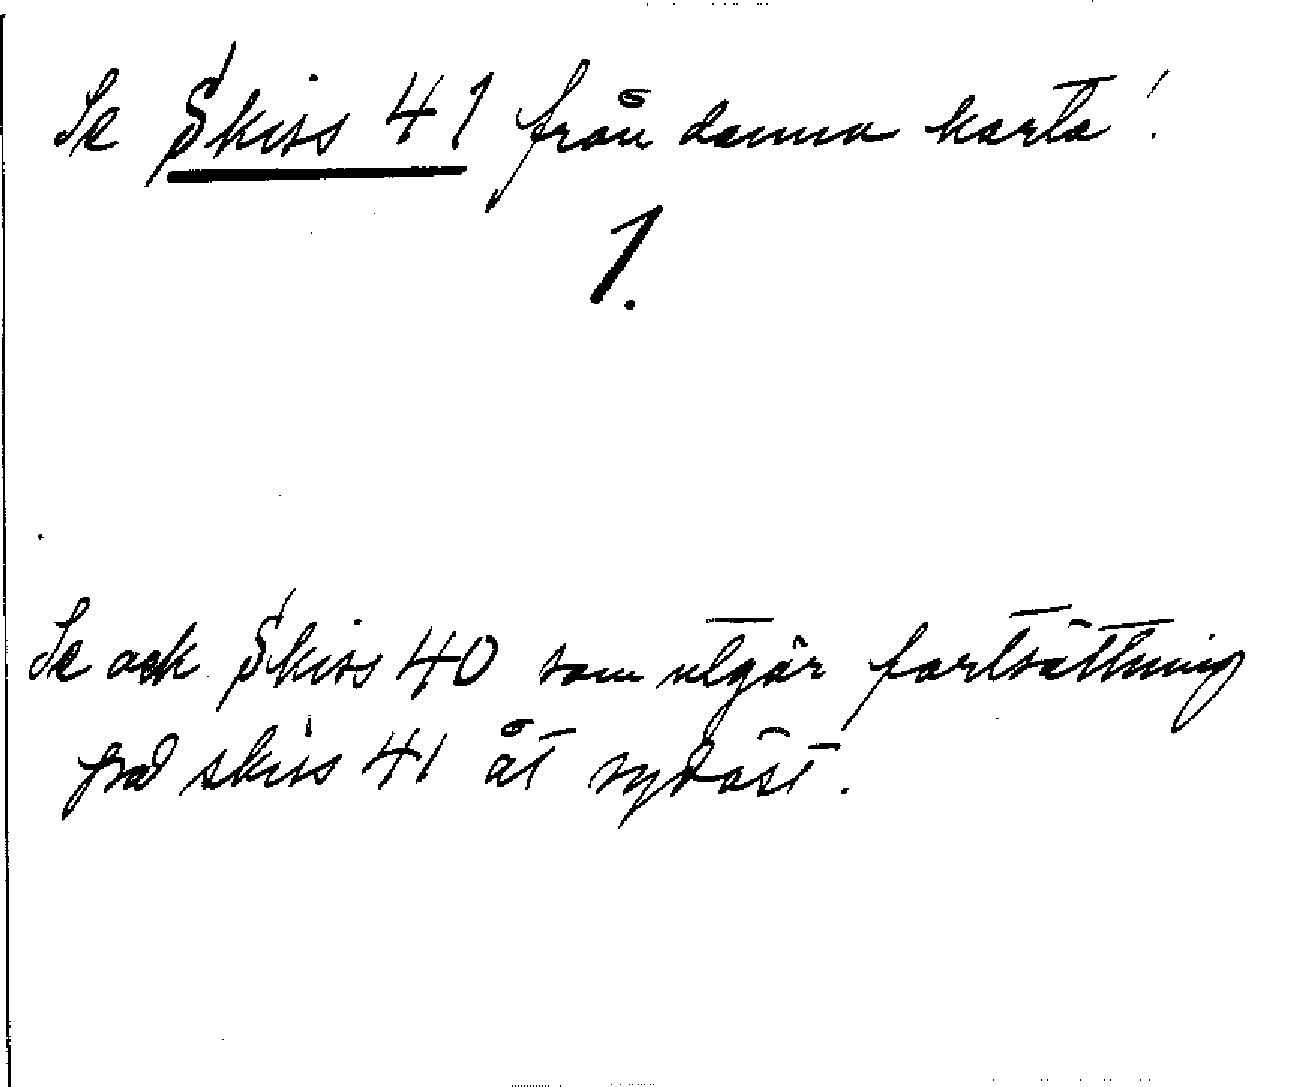 Se Skiss 41 från denna karta!
1.
Se ock Skiss 40 som utgör fortsättning
på skiss 41 åt sydöst.